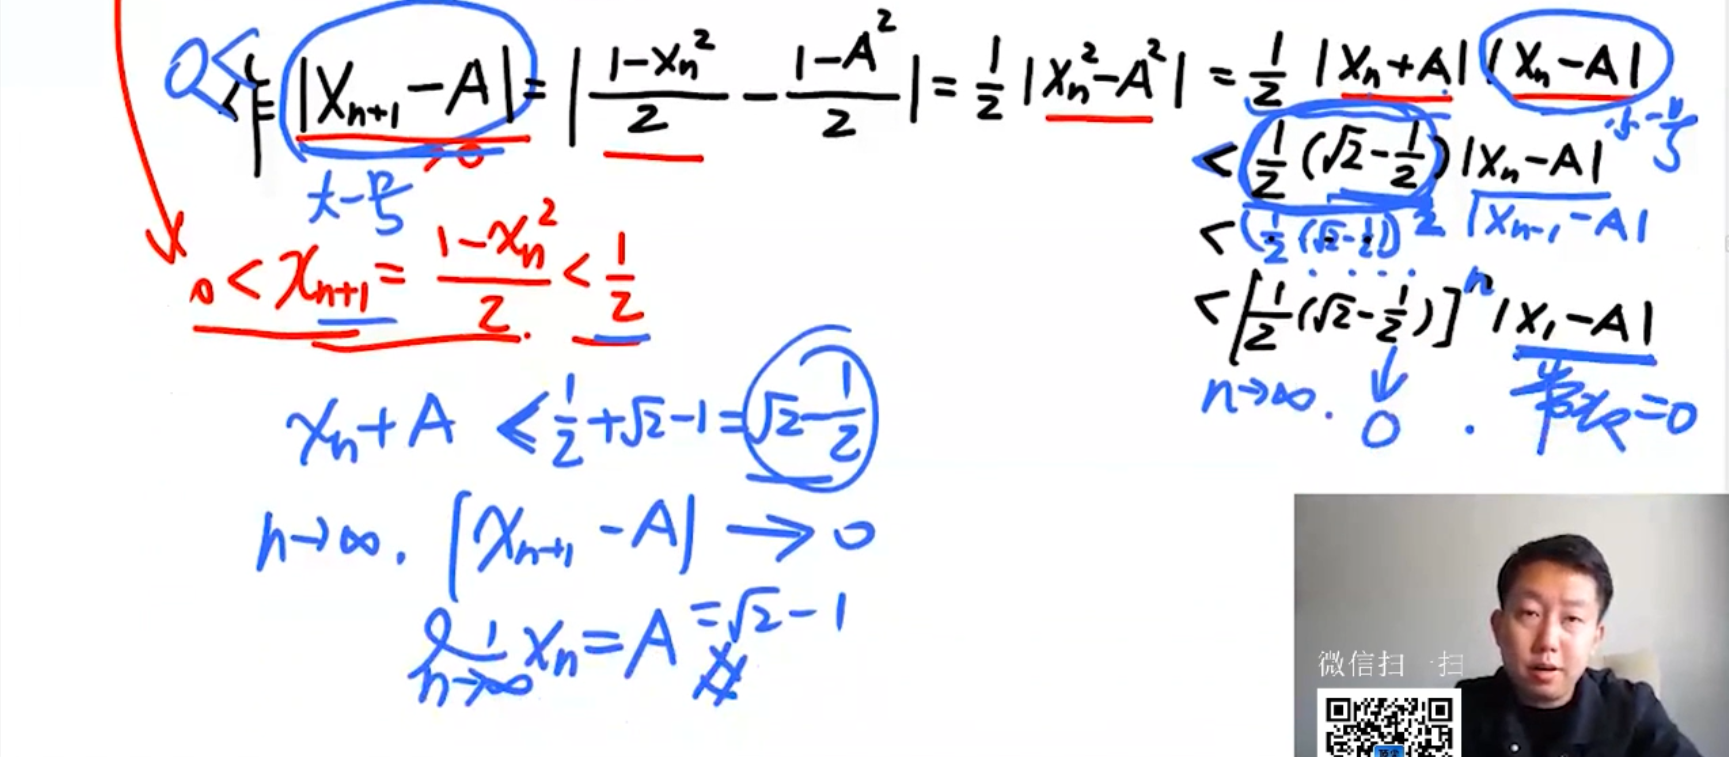 0 < |x_{n+1} - A| = |\frac{1-x_n^2}{2} - \frac{1-A^2}{2}| = \frac{1}{2}|x_n^2 - A^2| = \frac{1}{2}|x_n + A||x_n - A|
>0
< \frac{1}{2}(\sqrt{2} - \frac{1}{2})|x_n - A|
< (\frac{1}{2}(\sqrt{2} - \frac{1}{2}))^2 |x_{n-1} - A|
....
< [\frac{1}{2}(\sqrt{2} - \frac{1}{2})]^n |x_1 - A|
n→∞. ↓ 0 . =0
0 < x_{n+1} = \frac{1-x_n^2}{2} < \frac{1}{2}.
x_n + A < \frac{1}{2} + \sqrt{2} - 1 = \sqrt{2} - \frac{1}{2}
n→∞. |x_{n+1} - A| → 0
\lim_{n→∞} x_n = A = \sqrt{2} - 1
微信扫一扫